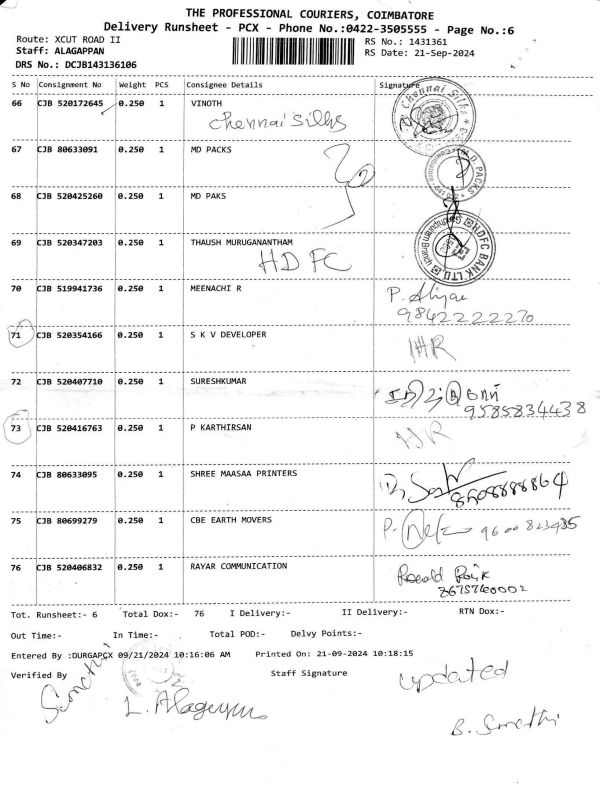 THE PROFESSIONAL COURIERS, COIMBATORE
Delivery Runsheet - PCX - Phone No.:0422-3505555 - Page No.:6
Route: XCUT ROAD II RS No.: 1431361
Staff: ALAGAPPAN RS Date: 21-Sep-2024
DRS No.: DCJB143136106
S No Consignment No Weight PCS Consignee Details Signature
66 CJB 520172645 0.250 1 VINOTH
Chennai Silks
67 CJB 80633091 0.250 1 MD PACKS
68 CJB 520425260 0.250 1 MD PAKS
69 CJB 520347203 0.250 1 THAUSH MURUGANANTHAM
HDFC
HDFC BANK LTD
70 CJB 519941736 0.250 1 MEENACHI R
9842222270
71 CJB 520354166 0.250 1 S K V DEVELOPER
72 CJB 520407710 0.250 1 SURESHKUMAR
9585834438
73 CJB 520416763 0.250 1 P KARTHIRSAN
74 CJB 80633095 0.250 1 SHREE MAASAA PRINTERS
75 CJB 80699279 0.250 1 CBE EARTH MOVERS
76 CJB 520406832 0.250 1 RAYAR COMMUNICATION
Tot. Runsheet:- 6 Total Dox:- 76 I Delivery:- II Delivery:- RTN Dox:-
Out Time:- In Time:- Total POD:- Delvy Points:-
Entered By :DURGAPCX 09/21/2024 10:16:06 AM Printed On: 21-09-2024 10:18:15
Verified By Staff Signature
updated